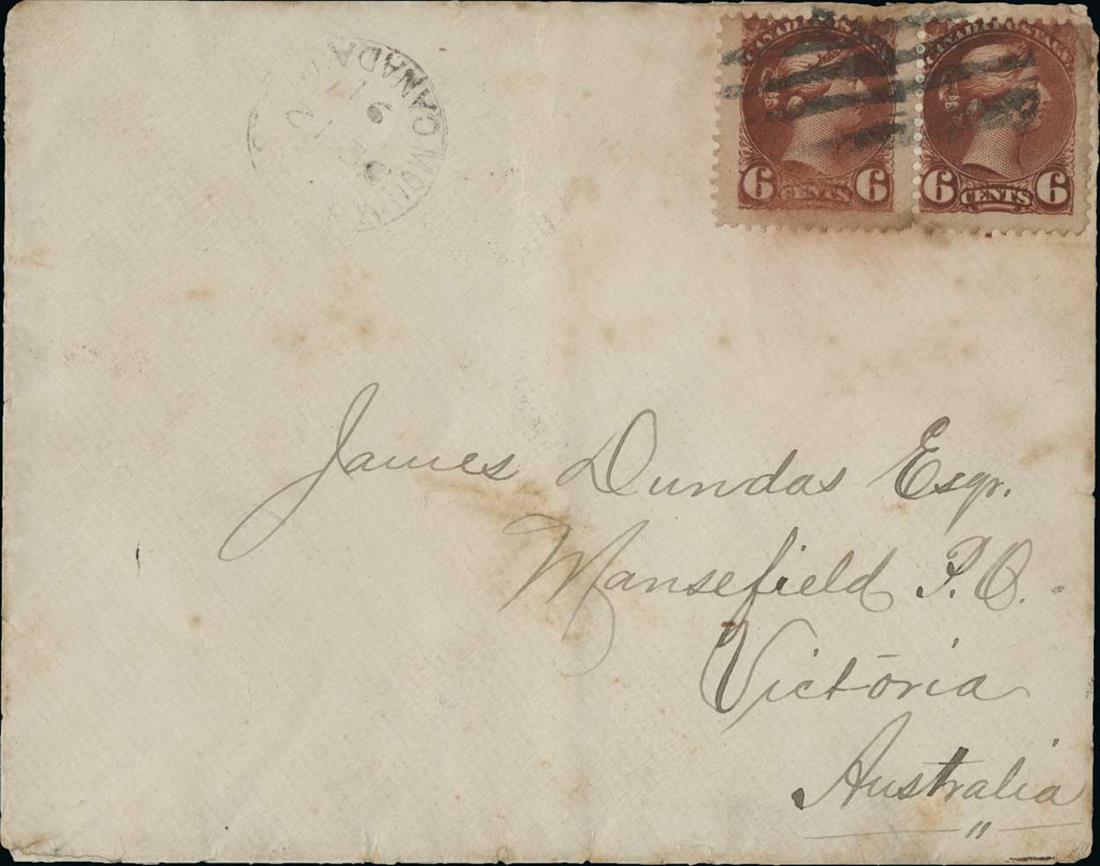 CANADA POSTAGE
6 CENTS 6
CANADA POSTAGE
6 CENTS 6
CANADA
James Dundas Esqr.
Mansefield P.O.
Victoria
Australia
"